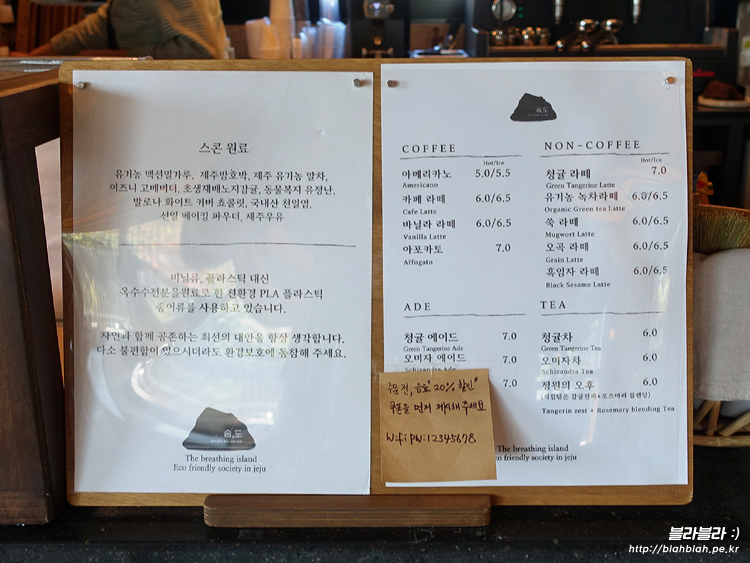 스콘 원료
유기농 맥선밀가루, 제주밤호박, 제주 유기농 말차,
이즈니 고메버터, 초생재배노지감귤, 동물복지 유정난,
발로나 화이트 커버 쵸콜릿, 국내산 천일염,
선일 베이킹 파우더, 제주우유
비닐류, 플라스틱 대신
옥수수전분을원료로 한 친환경 PLA 플라스틱
종이류를 사용하고 있습니다.
자연과 함께 공존하는 최선의 대안을 항상 생각합니다.
다소 불편함이 있으시더라도 환경보호에 동참해 주세요.
숨,도
The breathing island
Eco friendly society in jeju
숨,도
COFFEE
Hot/Ice
아메리카노 5.0/5.5
Americano
카페 라떼 6.0/6.5
Cafe Latte
바닐라 라떼 6.0/6.5
Vanilla Latte
아포카토 7.0
Affogato
NON-COFFEE
Hot/Ice
청귤 라떼 7.0
Green Tangerine Latte
유기농 녹차라떼 6.0/6.5
Organic Green tea Latte
쑥 라떼 6.0/6.5
Mugwort Latte
오곡 라떼 6.0/6.5
Grain Latte
흑임자 라떼 6.0/6.5
Black Sesame Latte
ADE
청귤 에이드 7.0
Green Tangerine Ade
오미자 에이드 7.0
Schizandra Ade
7.0
TEA
청귤차 6.0
Green Tangerine Tea
오미자차 6.0
Schizandra Tea
정원의 오후 6.0
(직접덖은 감귤진피+로즈마리 블렌딩)
Tangerin zest + Rosemary blending Tea
주문 전, 음료 20% 할인"
쿠폰을 먼저 제시해 주세요
Wifi PW:12345678
The breathing island
co friendly society in jeju
블라블라 :)
http://blahblah.pe.kr